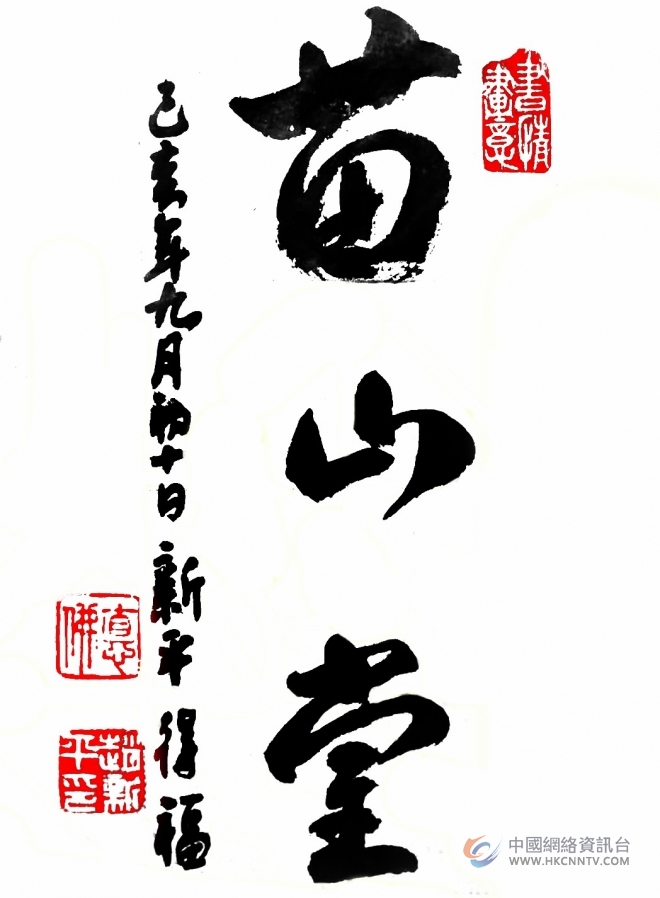 書情
畫意
苗山堂
己亥年九月初十日 新平 得福
趙新
平印
中國網絡資訊台
WWW.HKCNNTV.COM